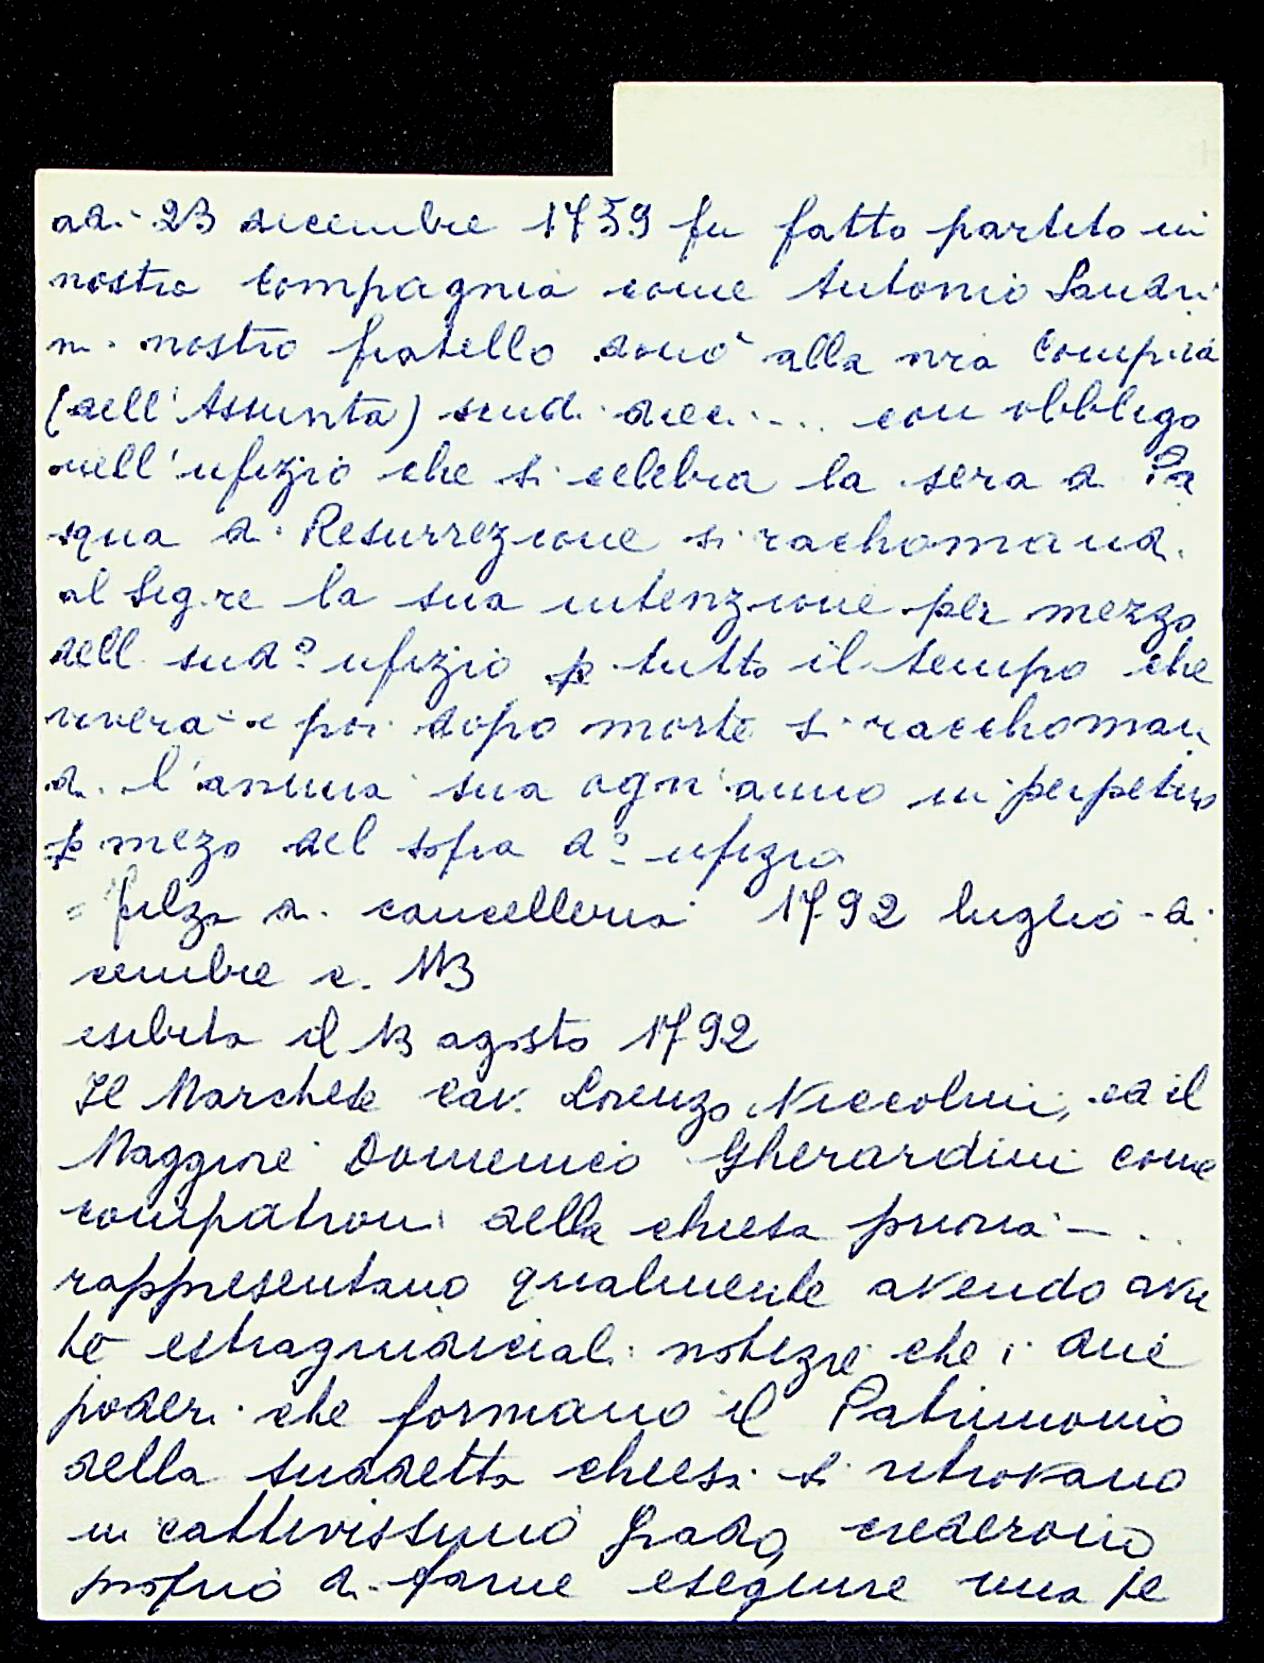 adi 23 dicembre 1759 fu fatto partito in
nostra compagnia come Antonio Sandri
ni nostro fratello donò alla nra Comp.ia
(dell'Assunta) scudi dieci - ... con obbligo
nell'ufizio che si celebra la sera di Pa
squa di Resurrezione si rachomandi
al Sig.re la sua intenzione per mezzo
dell sud.o ufizio p tutto il tempo che
viverà e poi dopo morte si racchoman
di l'anima sua ogn'anno in perpetuo
p mezo del sopra d.o ufizio
= filza di cancelleria 1792 luglio - di
cembre c. 113
esibita il 13 agosto 1792
Il Marchese Cav. Lorenzo Niccolini, ed il
Maggiore Domenico Gherardini come
compatroni della chiesa prioria - ..
rappresentano qualmente avendo avu
te estragiudiciali notizie che i due
poderi che formano il Patrimonio
della suddetta chiesa si ritrovano
in cattivissimo grado, crederono
proprio di farne eseguire una pe